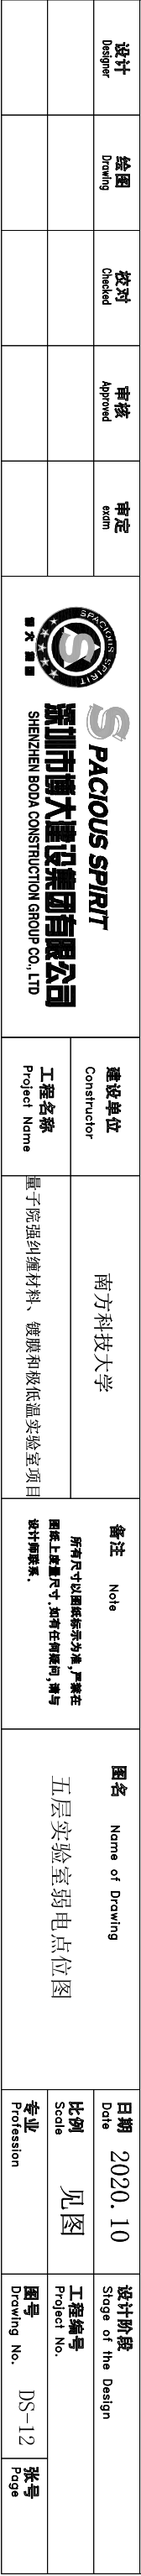 设计
Designer
绘图
Drawing
校对
Checked
审核
Approved
审定
exam
SPACIOUS SPIRIT
S
博大集团
SPACIOUS SPIRIT
深圳市博大建设集团有限公司
SHENZHEN BODA CONSTRUCTION GROUP CO., LTD
建设单位
Constructor
南方科技大学
工程名称
Project Name
量子院强纠缠材料、镀膜和极低温实验室项目
备注 Note
所有尺寸以图纸标示为准,严禁在
图纸上度量尺寸.如有任何疑问,请与
设计师联系.
图名 Name of Drawing
五层实验室弱电点位图
日期
Date
2020.10
设计阶段
Stage of the Design
比例
Scale
见图
工程编号
Project No.
专业
Profession
图号
Drawing No.
DS-12
张号
Page